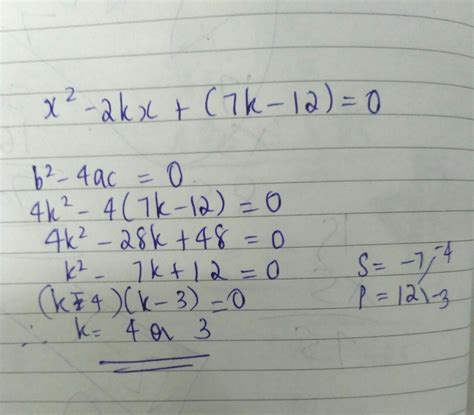 x² - 2kx + (7k - 12) = 0
b² - 4ac = 0
4k² - 4(7k - 12) = 0
4k² - 28k + 48 = 0
k² - 7k + 12 = 0
(k - 4)(k - 3) = 0
∴ k = 4 or 3
S = -7, -4
P = 12 \ -3